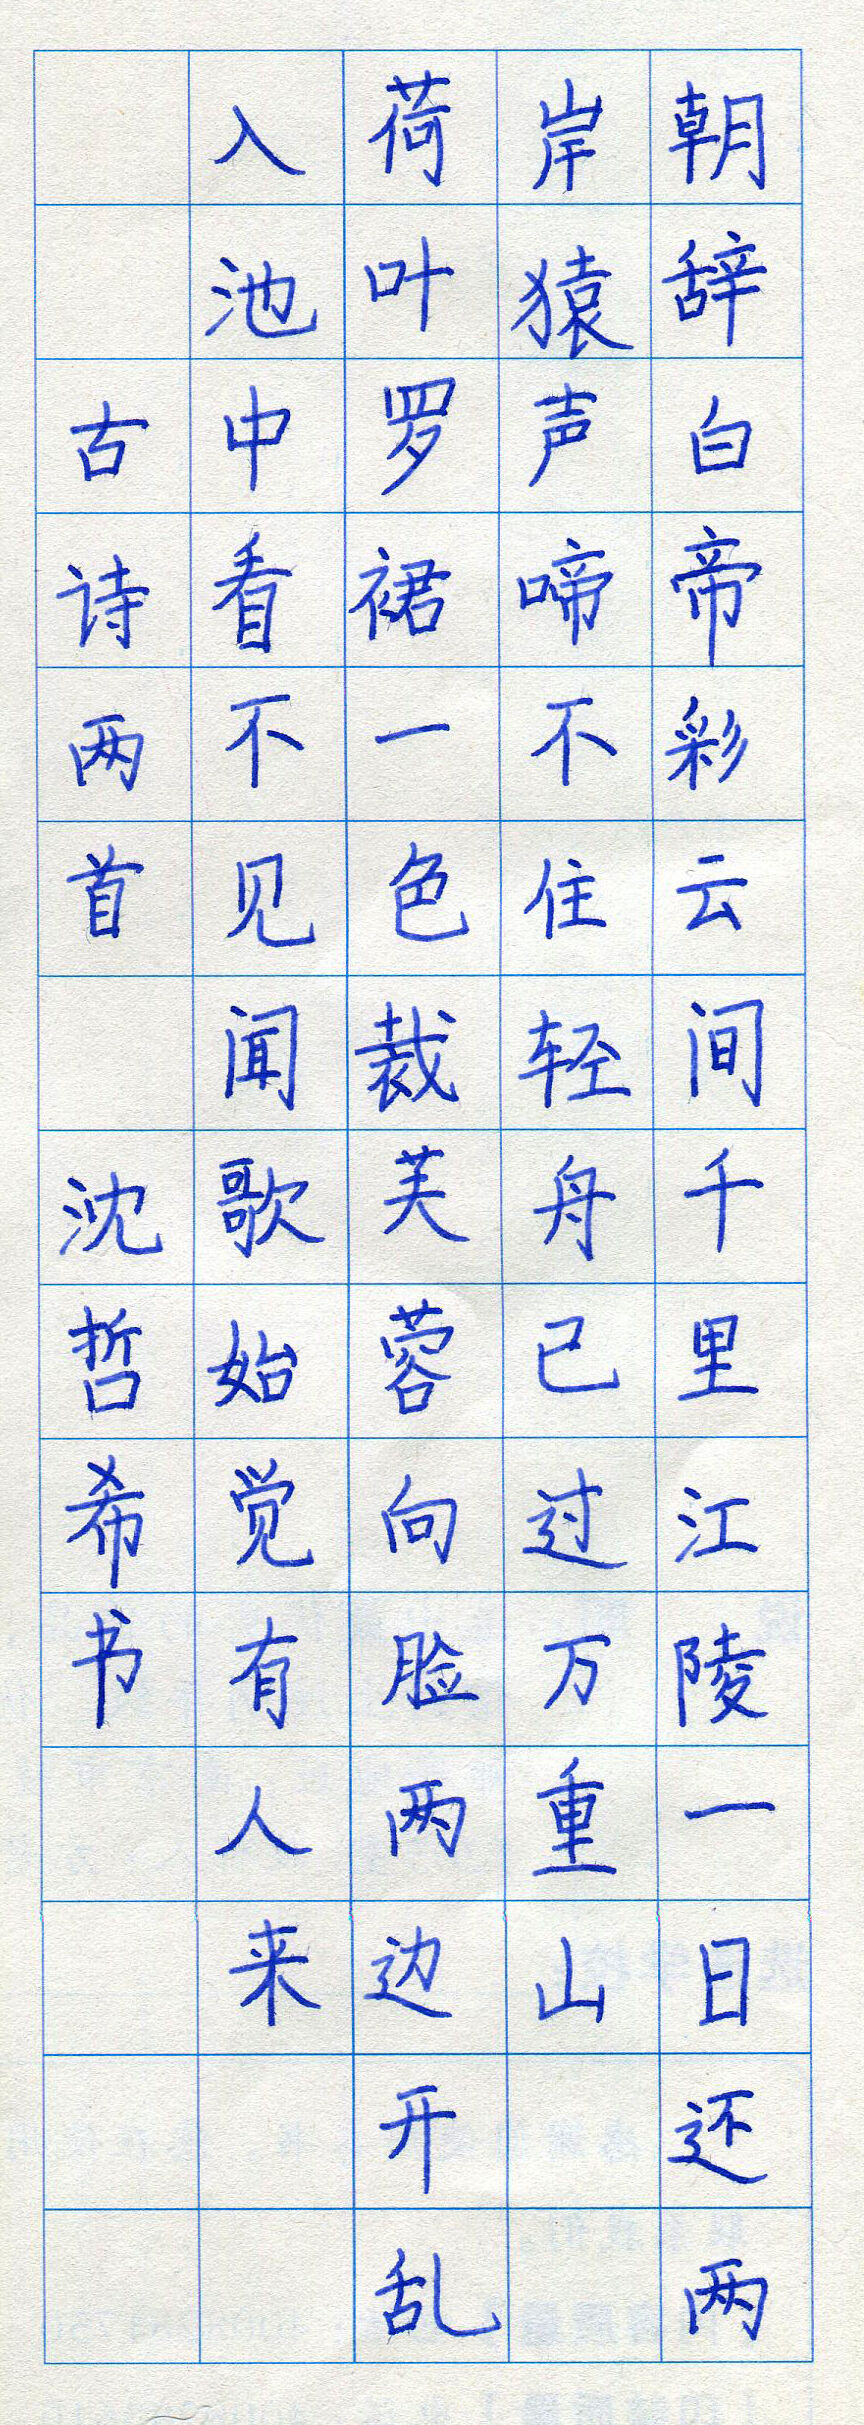 朝辞白帝彩云间千里江陵一日还两
岸猿声啼不住轻舟已过万重山
荷叶罗裙一色裁芙蓉向脸两边开乱
入池中看不见闻歌始觉有人来
古诗两首 沈哲希书